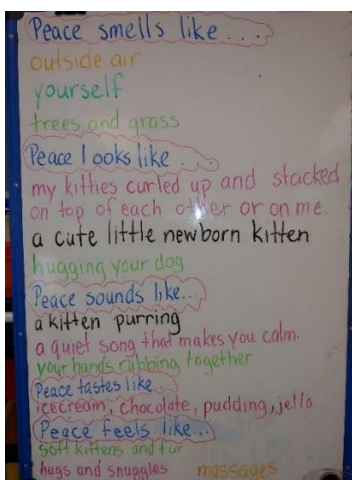 Peace smells like . . .
outside air
yourself
trees and grass
Peace looks like . . .
my kitties curled up and stacked
on top of each other or on me.
a cute little newborn kitten
hugging your dog
Peace sounds like...
a kitten purring
a quiet song that makes you calm.
your hands rubbing together
Peace tastes like...
icecream, chocolate, pudding, jello
Peace feels like...
soft kittens and fur
hugs and snuggles massages